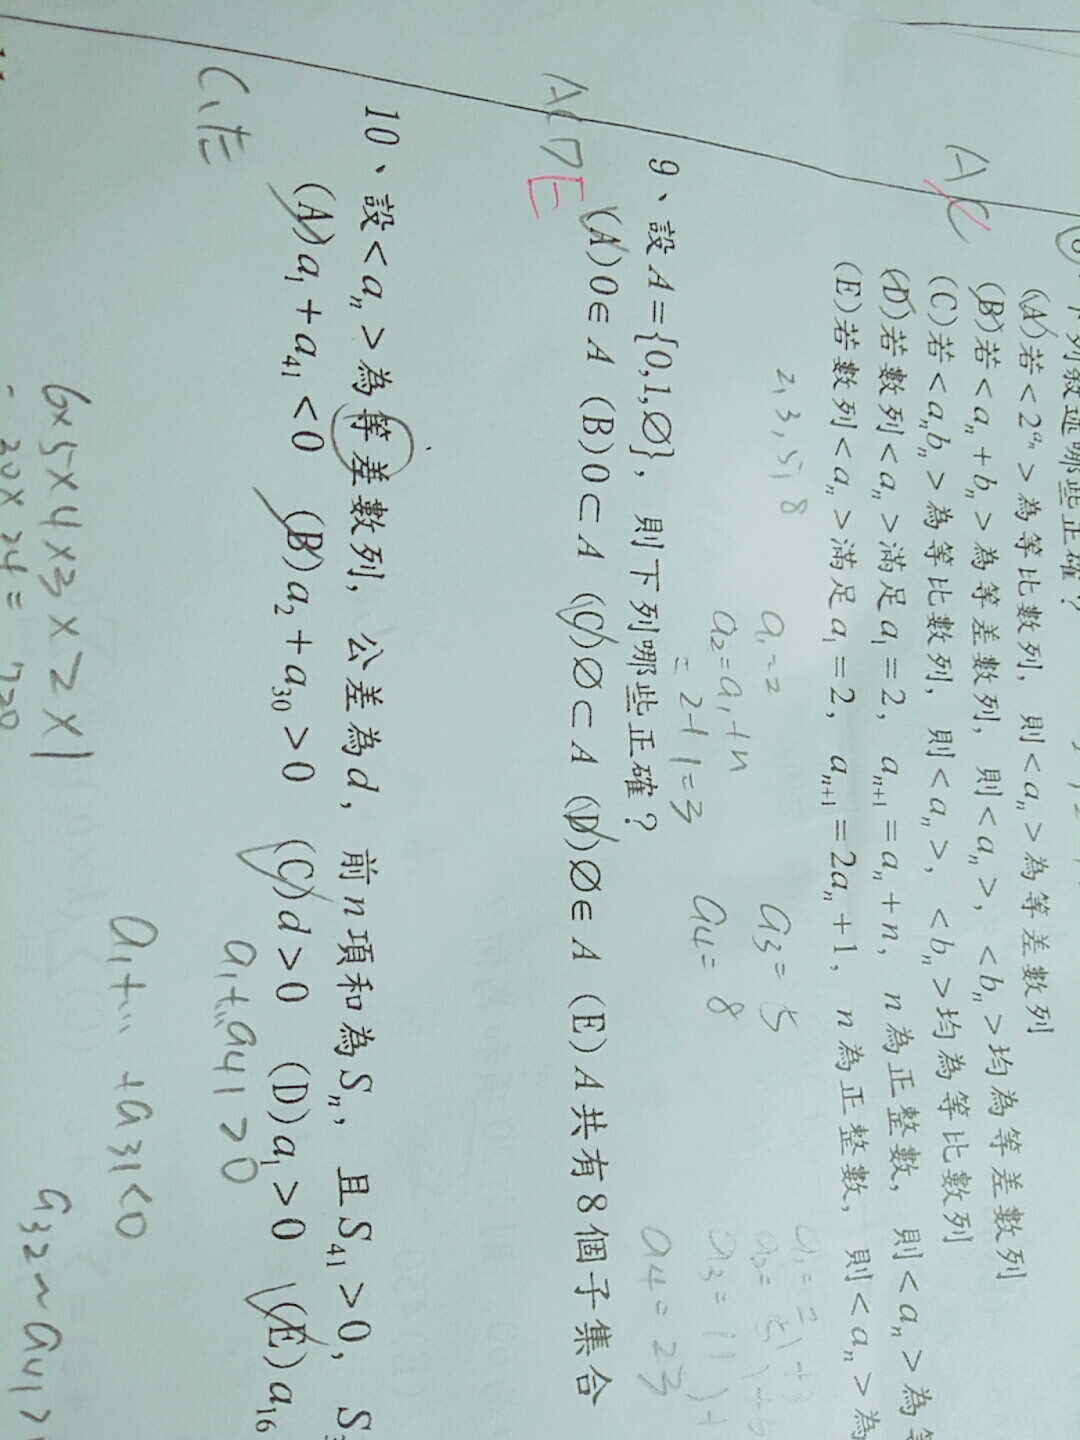 下列敘述哪些正確？
(A)若<2^{a_n}>為等比數列，則<a_n>為等差數列
(B)若<a_n+b_n>為等差數列，則<a_n>，<b_n>均為等差數列
(C)若<a_nb_n>為等比數列，則<a_n>，<b_n>均為等比數列
(D)若數列<a_n>滿足a_1=2，a_{n+1}=a_n+n，n為正整數，則<a_n>為
(E)若數列<a_n>滿足a_1=2，a_{n+1}=2a_n+1，n為正整數，則<a_n>為
AC
2,3,5,8
a_1=2
a_2=a_1+n
=2+1=3
a_3=5
a_4=8
a_3=11
a_4=23
9、設A={0,1,∅}，則下列哪些正確？
(A)0∈A (B)0⊂A (C)∅⊂A (D)∅∈A (E)A共有8個子集合
ACDE
10、設<a_n>為等差數列，公差為d，前n項和為S_n，且S_{41}>0，S
(A)a_1+a_{41}<0 (B)a_2+a_{30}>0 (C)d>0 (D)a_1>0 (E)a_{16}
C,E
a_1+…a_{41}>0
a_1+…+a_{31}<0
a_{32}~a_{41}>
6×5×4×3×2×1
30×24=720